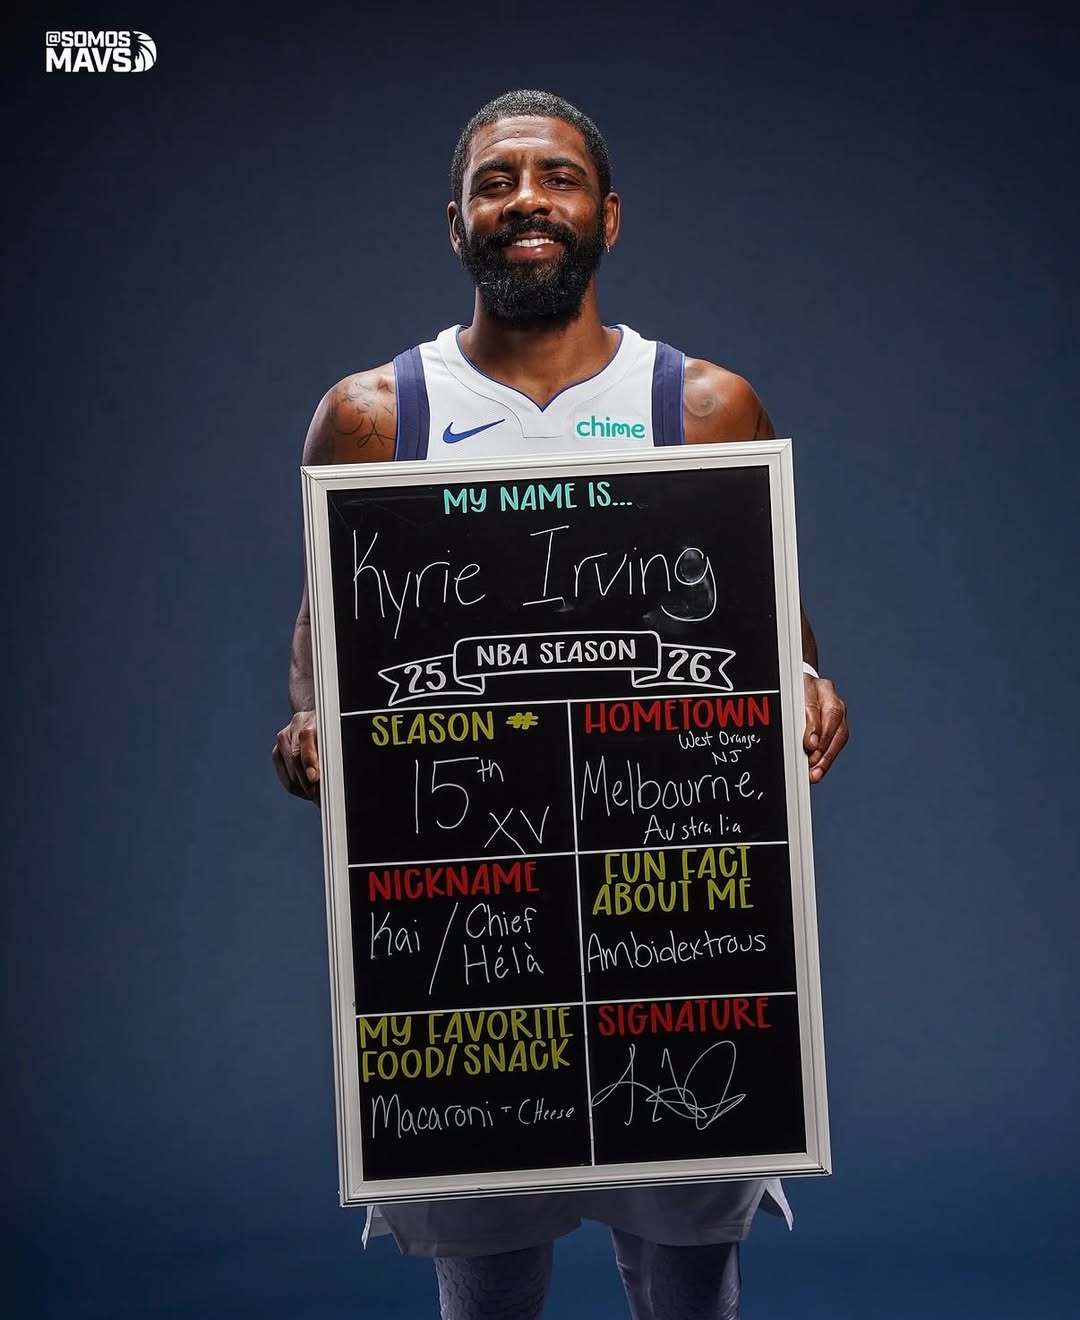 @SOMOS
MAVS
chime
MY NAME IS...
Kyrie Irving
25 NBA SEASON 26
SEASON #
15th
XV
HOMETOWN
West Orange,
NJ
Melbourne,
Australia
NICKNAME
Kai / Chief
Hélà
FUN FACT
ABOUT ME
Ambidextrous
MY FAVORITE
FOOD/SNACK
Macaroni + CHeese
SIGNATURE